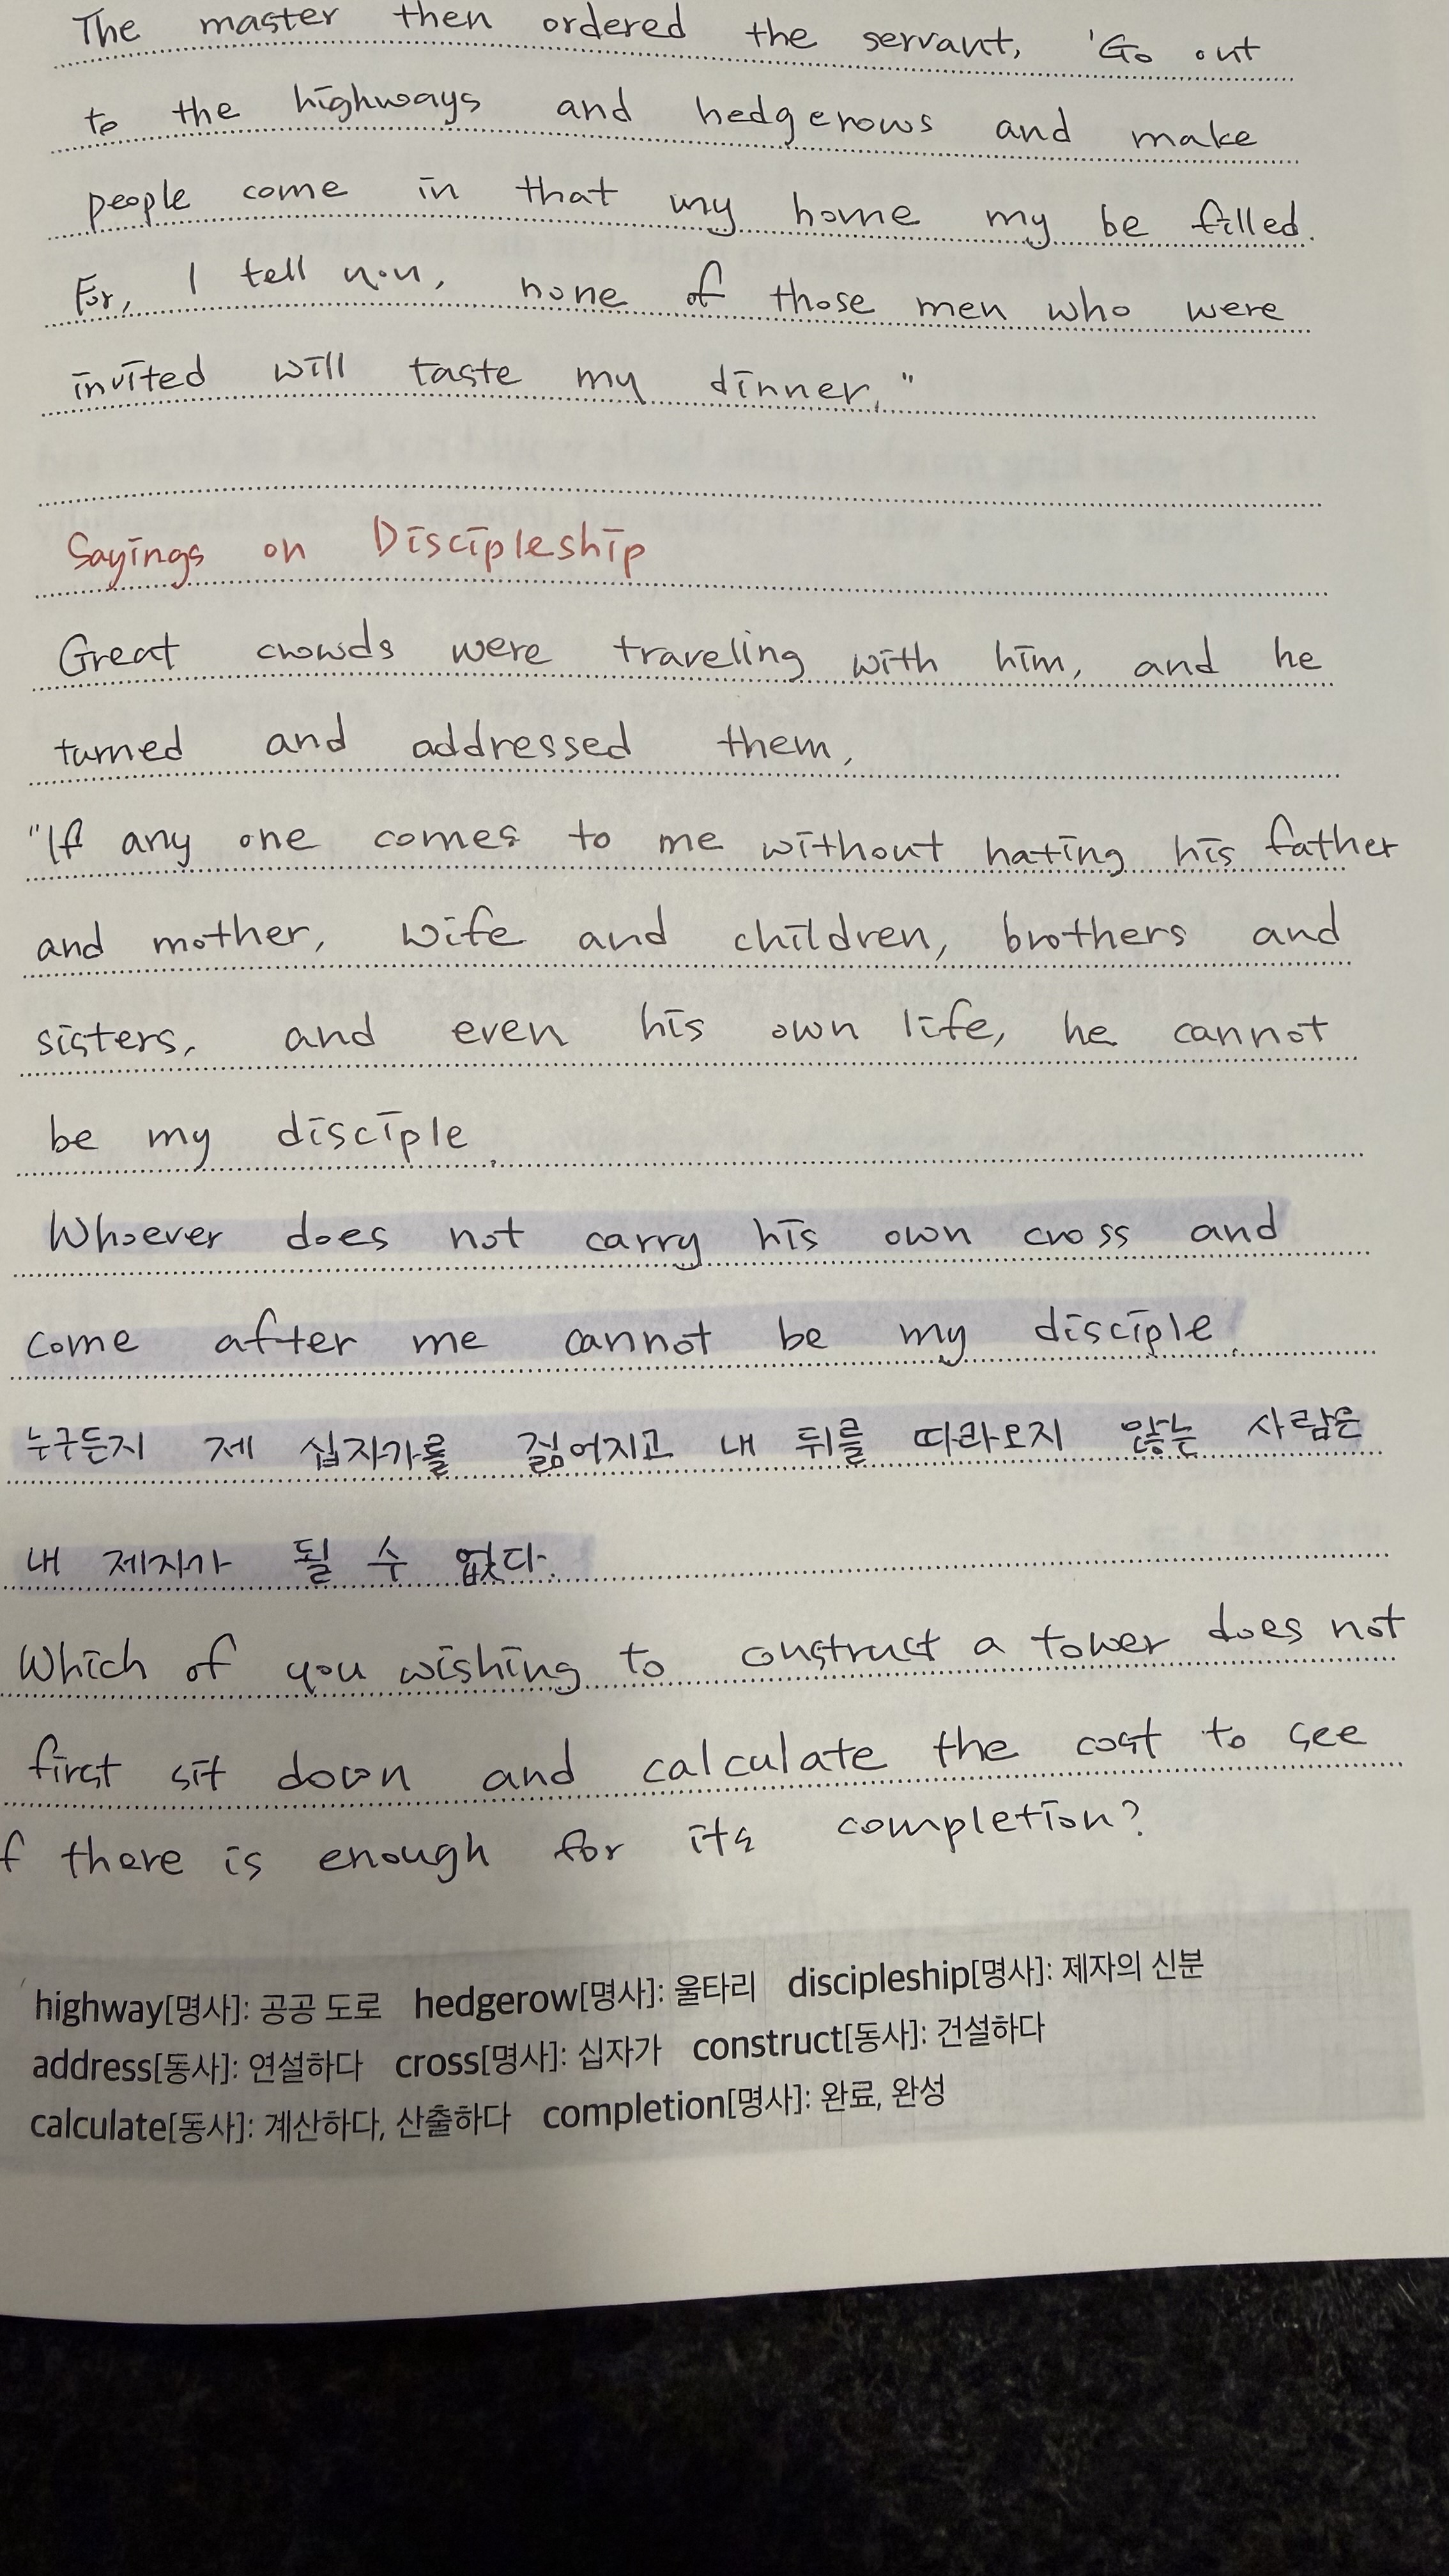 The master then ordered the servant, 'Go out
to the highways and hedgerows and make
people come in that my home my be filled.
For, I tell you, none of those men who were
invited will taste my dinner."
Sayings on Discipleship
Great crowds were traveling with him, and he
turned and addressed them,
"If any one comes to me without hating his father
and mother, wife and children, brothers and
sisters, and even his own life, he cannot
be my disciple.
Whoever does not carry his own cross and
come after me cannot be my disciple.
누구든지 제 십자가를 짊어지고 내 뒤를 따라오지 않는 사람은
내 제자가 될 수 없다.
Which of you wishing to construct a tower does not
first sit down and calculate the cost to see
f there is enough for its completion?
highway[명사]: 공공 도로 hedgerow[명사]: 울타리 discipleship[명사]: 제자의 신분
address[동사]: 연설하다 cross[명사]: 십자가 construct[동사]: 건설하다
calculate[동사]: 계산하다, 산출하다 completion[명사]: 완료, 완성